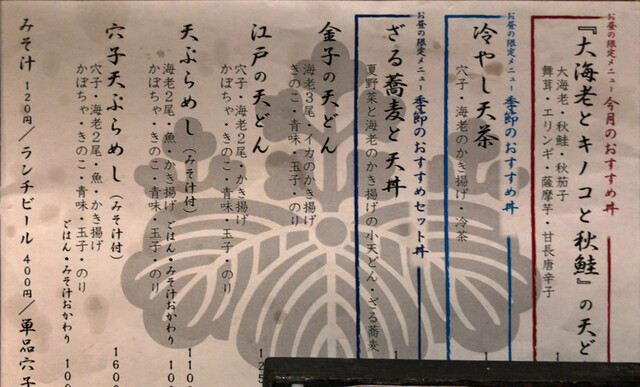 お昼の限定メニュー 今月のおすすめ丼
『大海老とキノコと秋鮭』の天ど
大海老・秋鮭・秋茄子
舞茸・エリンギ・薩摩芋・甘長唐辛子
お昼の限定メニュー 季節のおすすめ丼
冷やし天茶
穴子・海老のかき揚げ・冷茶
お昼の限定メニュー 季節のおすすめセット丼
ざる蕎麦と天丼
夏野菜と海老のかき揚げの小天どん・ざる蕎麦
金子の天どん
海老3尾・イカのかき揚げ
きのこ・青味・玉子・のり
江戸の天どん
穴子・海老2尾・かき揚げ
かぼちゃ・きのこ・青味・玉子・のり
天ぷらめし(みそ汁付)
海老2尾・魚・かき揚げ
かぼちゃ・きのこ・青味・玉子・のり
ごはん・みそ汁おかわり
穴子天ぷらめし(みそ汁付)
穴子・海老2尾・魚・かき揚げ
かぼちゃ・きのこ・青味・玉子・のり
ごはん・みそ汁おかわり
みそ汁 120円/ランチビール 400円/単品穴子